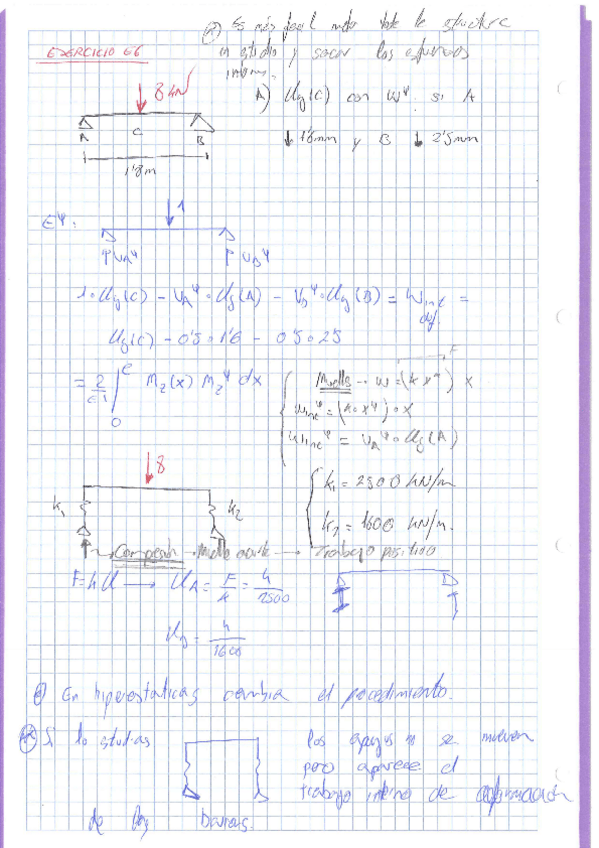 (*) Es más fácil meter toda la estructura
EJERCICIO E6
en estudio y sacar los esfuerzos
internos.
8 kN
A) Uy(C) con Wψ si A
A C B
↓ 1'6mm y B ↓ 2'5mm
1'8m
Eψ.
1
↑VAψ ↑VBψ
1·Uy(C) - VAψ·Uy(A) - VBψ·Uy(B) = Wint =
def.
Uy(C) - 0'5·1'6 - 0'5·2'5
= 2/EI ∫0^C Mz(x) Mzψ dx
F
Muelle → W = (k xψ) x
Wincψ = (k·xψ)·x
Wincψ = VAψ·Uy(A)
8
k1 k2
k1 = 2500 kN/m
k2 = 1600 kN/m.
Compresión → Muelle → Trabajo positivo
F = kU → UA = F/k = 4/2500
UB = 4/1600
En hiperestáticas cambia el procedimiento.
(*) Si lo estudias los apoyos no se mueven
pero aparece el
trabajo interno de deformación
de las barras.